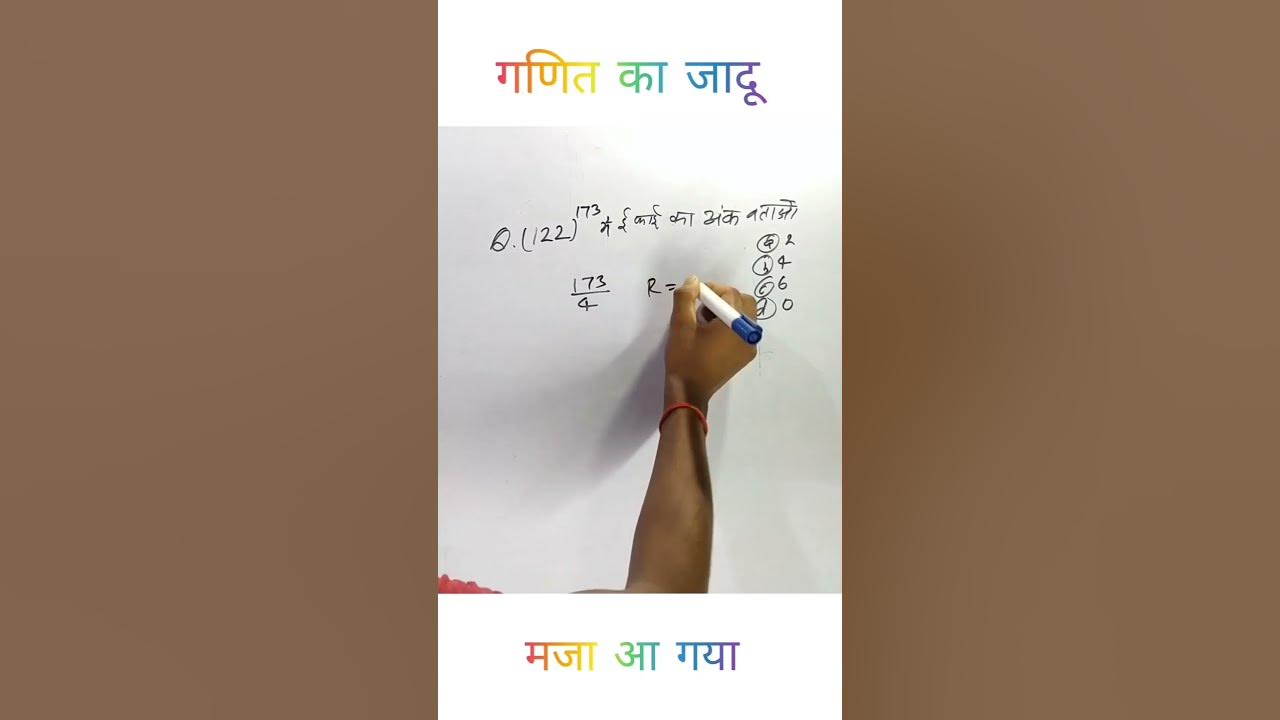 गणित का जादू
Q. (122)^173 में ईकाई का अंक बताओ
a 2
b 4
173/4 R =
c 6
d 0
मजा आ गया